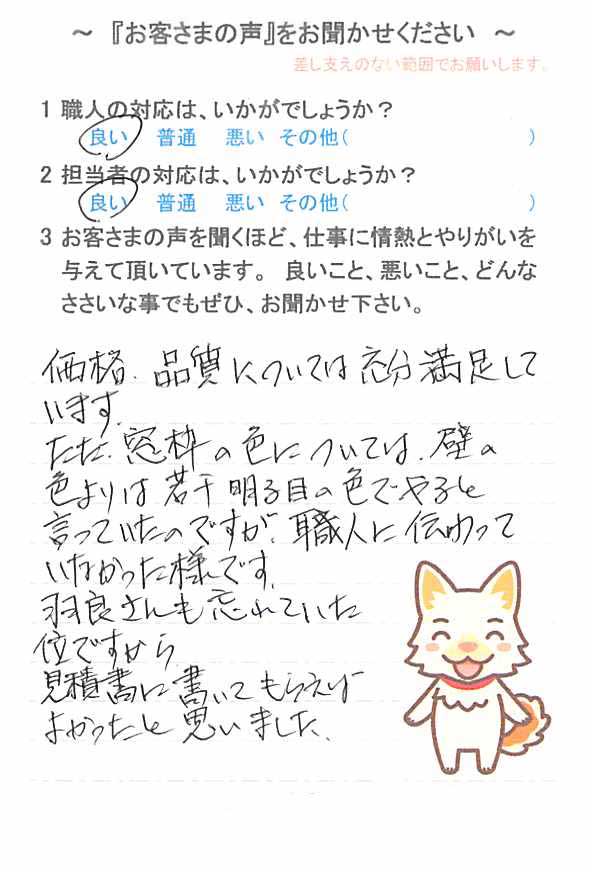 ～ 『お客さまの声』をお聞かせください ～
差し支えのない範囲でお願いします。
1 職人の対応は、いかがでしょうか？
良い 普通 悪い その他（ ）
2 担当者の対応は、いかがでしょうか？
良い 普通 悪い その他（ ）
3 お客さまの声を聞くほど、仕事に情熱とやりがいを
与えて頂いています。 良いこと、悪いこと、どんな
ささいな事でもぜひ、お聞かせ下さい。
価格、品質については充分満足して
います。
ただ、窓枠の色については、壁の
色よりは若干明る目の色でやると
言っていたのですが、職人に伝わって
いなかった様です。
羽良さんも忘れていた
位ですから、
見積書に書いてもらえば
よかったと思いました。